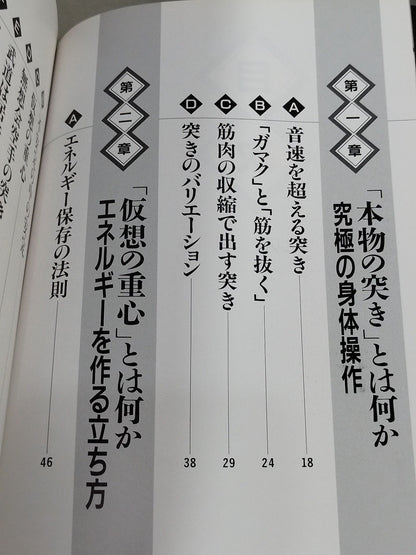 第一章
「本物の突き」とは何か
究極の身体操作
A 音速を超える突き 18
B 「ガマク」と「筋を抜く」 24
C 筋肉の収縮で出す突き 29
D 突きのバリエーション 38
第二章
「仮想の重心」とは何か
エネルギーを作る立ち方
A エネルギー保存の法則 46